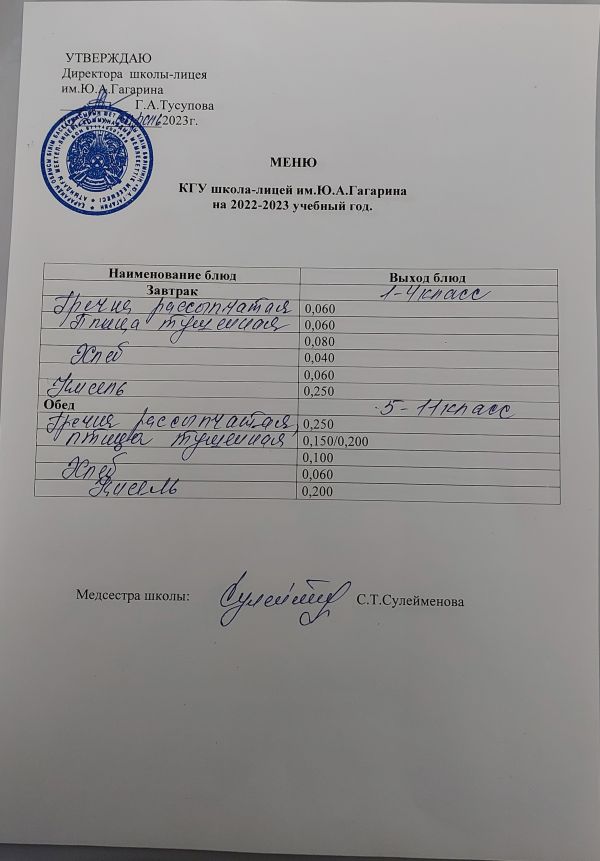 УТВЕРЖДАЮ
Директора школы-лицея
им.Ю.А.Гагарина
Г.А.Тусупова
2023г.
МЕНЮ
КГУ школа-лицей им.Ю.А.Гагарина
на 2022-2023 учебный год.
Наименование блюд Выход блюд
Завтрак 1-4 класс
Гречия рассыпчатая 0,060
Птица тушенная 0,060
0,080
Хлеб 0,040
0,060
Кисель 0,250
Обед 5-11 класс
Гречия рассыпчатая 0,250
птица тушенная 0,150/0,200
0,100
Хлеб 0,060
Кисель 0,200
Медсестра школы: С.Т.Сулейменова